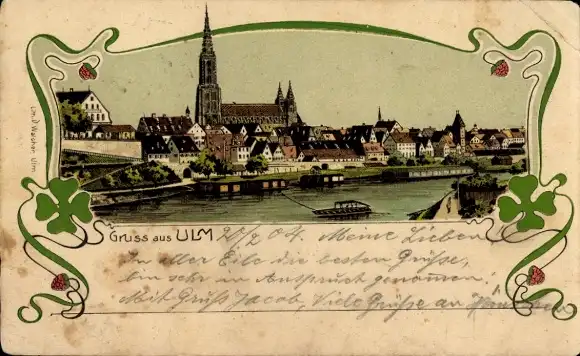 Gruss aus ULM 20/2 04. Meine Lieben
In aller Eile die besten Grüße,
bin sehr in Anspruch genommen!
Mit Gruß Jacob, Viele Grüße an
Ulm.